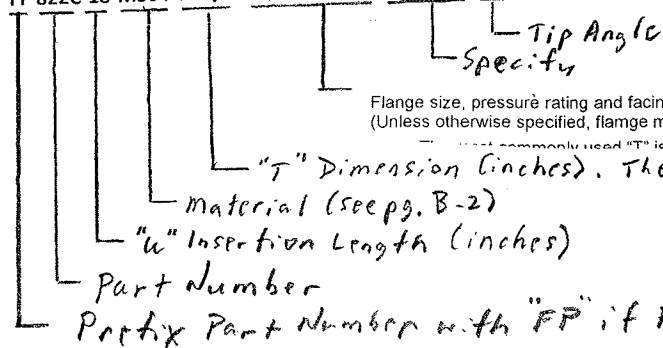 Tip Angle
Specify
Flange size, pressure rating and facin
(Unless otherwise specified, flamge m
commonly used "T" is
"T" Dimension (inches). The
Material (see pg. B-2)
"u" Insertion Length (inches)
Part Number
Prefix Part Number with "FP" if